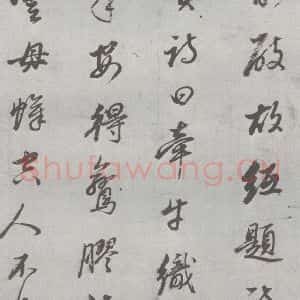 故紙題
詩曰牽牛織
安得鸞膠
母蟬古人不
shufawang.cn